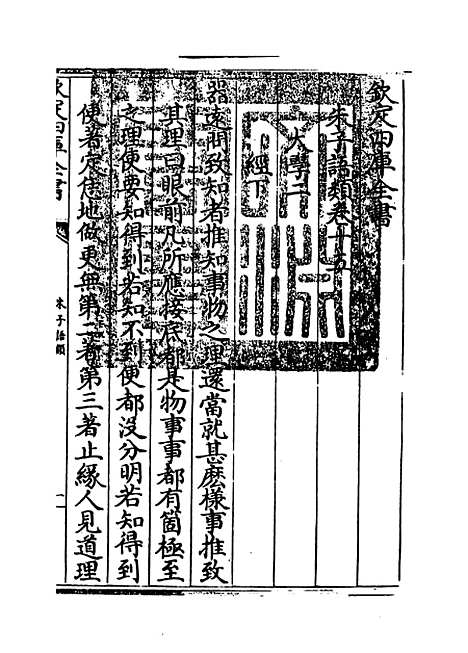 欽定四庫全書
朱子語類卷十五
大學二
經下
器遠問致知者推致事物之理還當就甚麽樣事推致
其理曰眼前凡所應接底都是物事事都有箇極至
之理便要知得到若知不到便都沒分明若知得到
便著定恁地做更無第二著第三著止緣人見道理
欽定四庫全書
朱子語類
一